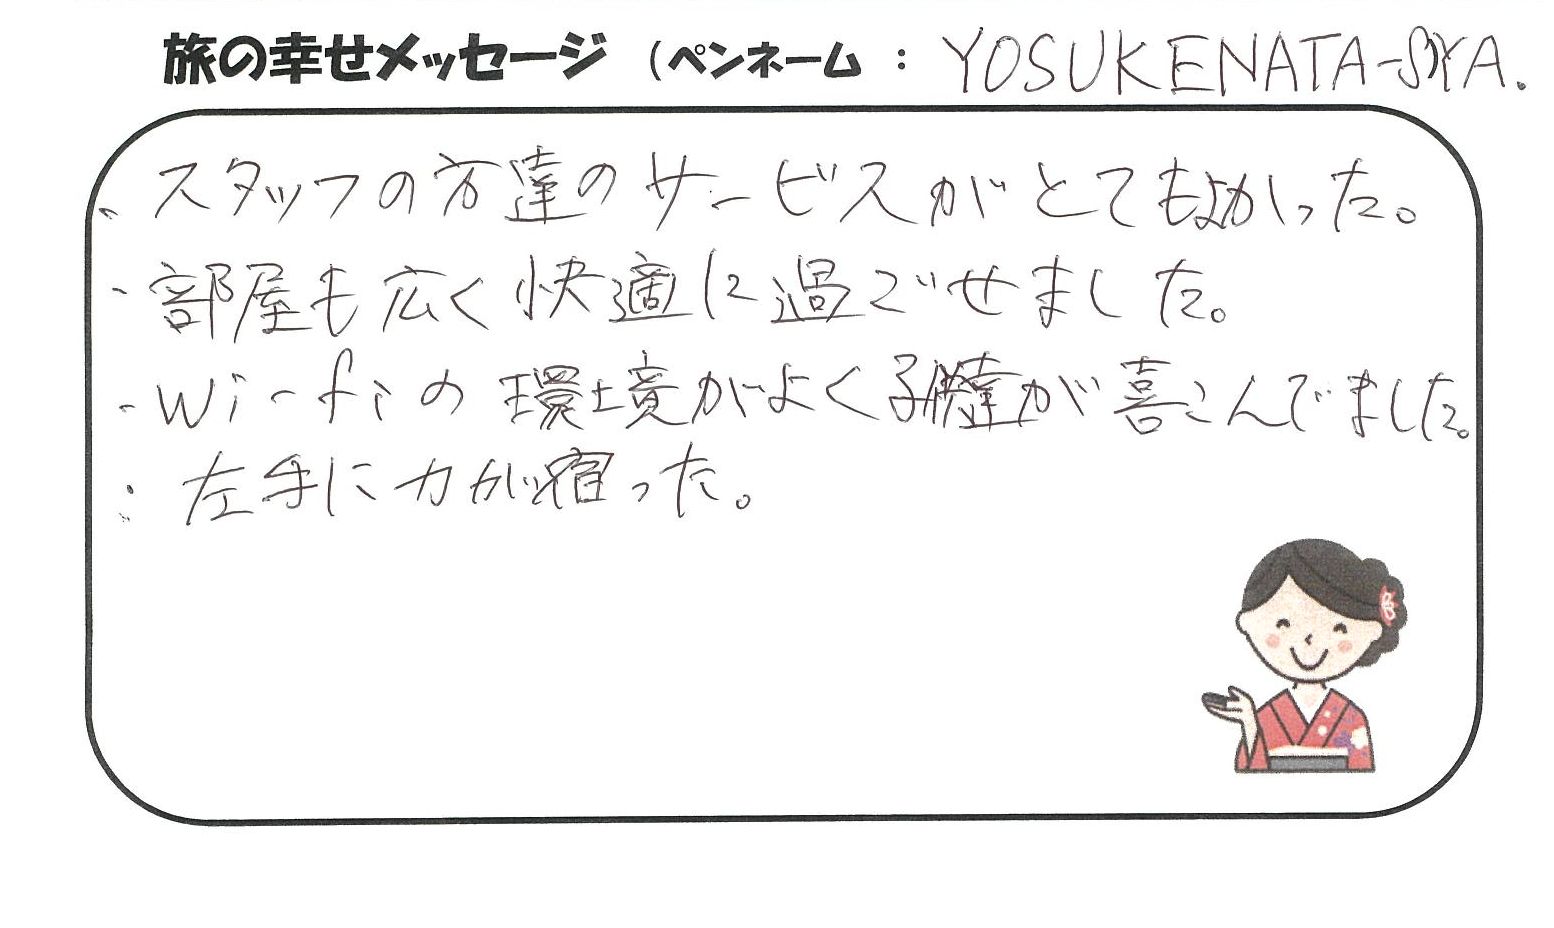 旅の幸せメッセージ (ペンネーム : YOSUKENATA-SYA.
・スタッフの方達のサービスがとてもよかった。
・部屋も広く快適に過ごせました。
・Wi-fiの環境がよく子供達が喜こんでました。
: 左手に力が宿った。